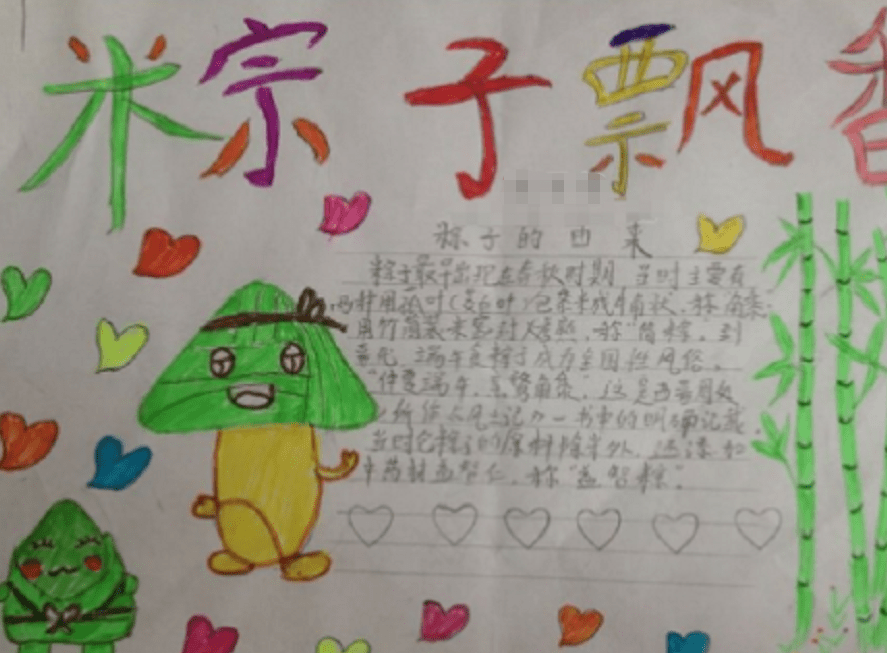 粽子飘香
粽子的由来
粽子最早出现在春秋时期,当时主要有
两种用菰叶(茭白叶)包黍米成牛角状,称"角黍";
用竹筒装米密封烤熟,称"筒粽"。到
晋代,端午食粽子成为全国性风俗。
"仲夏端午,烹鹜角黍",这是西晋周处
所作《风土记》一书中的明确记载。
当时包粽子的原料除米外,还添加
中药材益智仁,称"益智粽"。